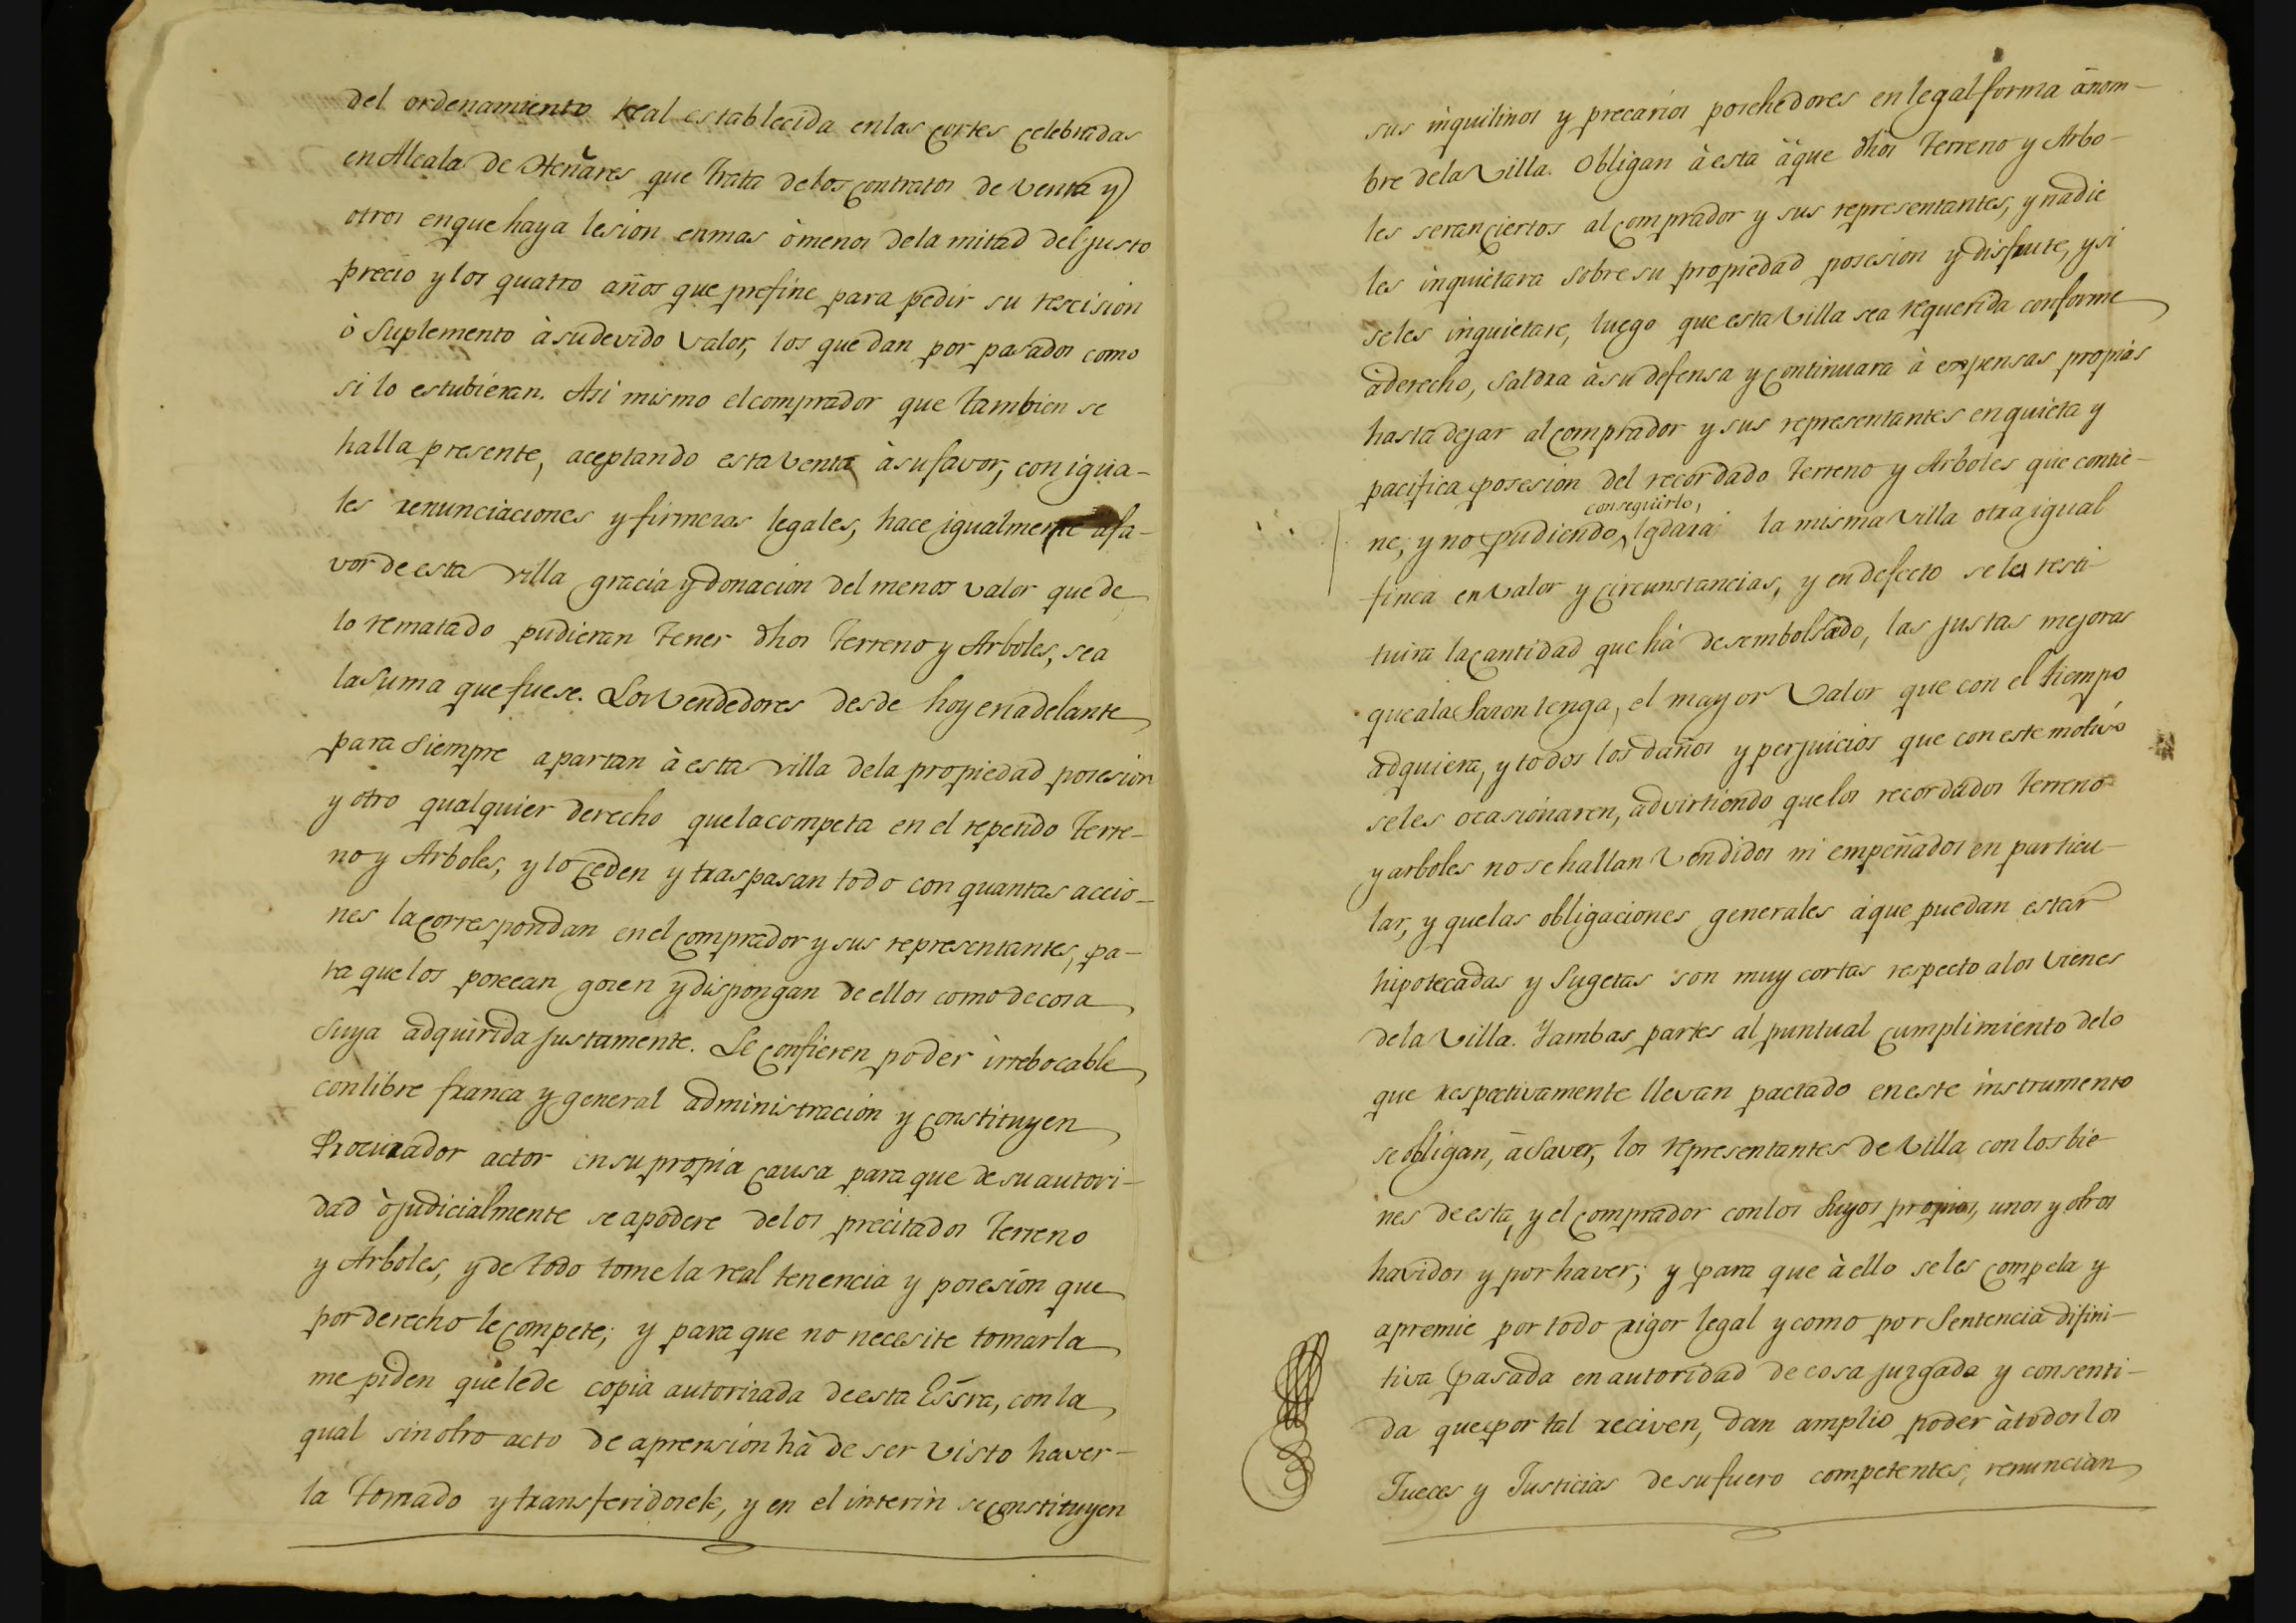 del ordenamiento Real establecida en las Cortes celebradas
en Alcala de Henares que trata de los contratos de venta y
otros en que haya lesion en mas ò menos de la mitad del justo
precio y los quatro años que prefine para pedir su rescision
ò Suplemento à su devido valor, los que dan por pasados como
si lo estubieran. Asi mismo el comprador que tambien se
halla presente, aceptando esta Venta à su favor, con igua-
les renunciaciones y firmezas legales, hace igualmente à fa-
vor de esta villa gracia y donacion del menos valor que de
lo rematado pudieran tener dhos Terreno y Arboles, sea
la Suma que fuese. Los Vendedores desde hoy en adelante
para Siempre apartan à esta villa de la propiedad posesion
y otro qualquier derecho que la competa en el repetido Terre-
no y Arboles, y lo ceden y traspasan todo con quantas accio-
nes la correspondan en el comprador y sus representantes, pa-
ra que los poseean gozen y dispongan de ellos como de cosa
Suya adquirida justamente. Le confieren poder irrebocable
con libre franca y general administracion y constituyen
Procurador actor en su propia causa para que de su autori-
dad ò judicialmente se apodere de los precitados Terreno
y Arboles, y de todo tome la real tenencia y posesion que
por derecho le compete; y para que no necesite tomarla
me piden que le de copia autorizada de esta Essra, con la
qual sin otro acto de aprension hà de ser visto haver-
la tomado y transferidosele, y en el interin se constituyen
sus inquilinos y precarios posehedores en legal forma à nom-
bre de la Villa. Obligan à esta à que dhos Terreno y Arbo-
les seran ciertos al comprador y sus representantes, y nadie
les inquietara sobre su propiedad posesion y disfrute, y si
se les inquietare, luego que esta Villa sea requerida conforme
à derecho, Saldra à su defensa y continuara à expensas propias
hasta dejar al comprador y sus representantes en quieta y
pacifica posesion del recordado Terreno y Arboles que contie-
conseguirlo,
ne; y no pudiendo, le dara la misma Villa otra igual
finca en valor y circunstancias, y en defecto se le resti-
tuira la cantidad que hà desembolsado, las justas mejoras
que ala Sazon tenga, el mayor Valor que con el tiempo
adquiera, y todos los daños y perjuicios que con este motivo
se les ocasionaren, advirtiendo que los recordados Terreno
y arboles no se hallan Vendidos ni empeñados en particu-
lar, y que las obligaciones generales à que puedan estar
hipotecadas y Sugetas son muy cortas respecto a los vienes
de la Villa. Y ambas partes al puntual cumplimiento delo
que respectivamente llevan pactado en este instrumento
se obligan, à Saver, los representantes de Villa con los bie-
nes de esta, y el comprador con los Suyos propios, unos y otros
havidos y por haver; y para que à ello se les compela y
apremie por todo rigor legal y como por Sentencia difini-
tiva pasada en autoridad de cosa juzgada y consenti-
da que por tal reciven, dan amplio poder à todos los
Jueces y Justicias de su fuero competentes, renuncian